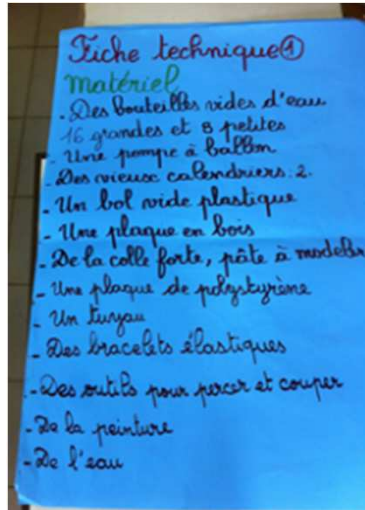 Fiche technique ①
matériel
- Des bouteilles vides d'eau
16 grandes et 8 petites
- Une pompe à ballon
- Des vieux calendriers : 2.
- Un bol vide plastique
- Une plaque en bois
- De la colle forte, pâte à modeler
- Une plaque de polystyrène
- Un tuyau
- Des bracelets élastiques
- Des outils pour percer et couper
- De la peinture
- De l'eau